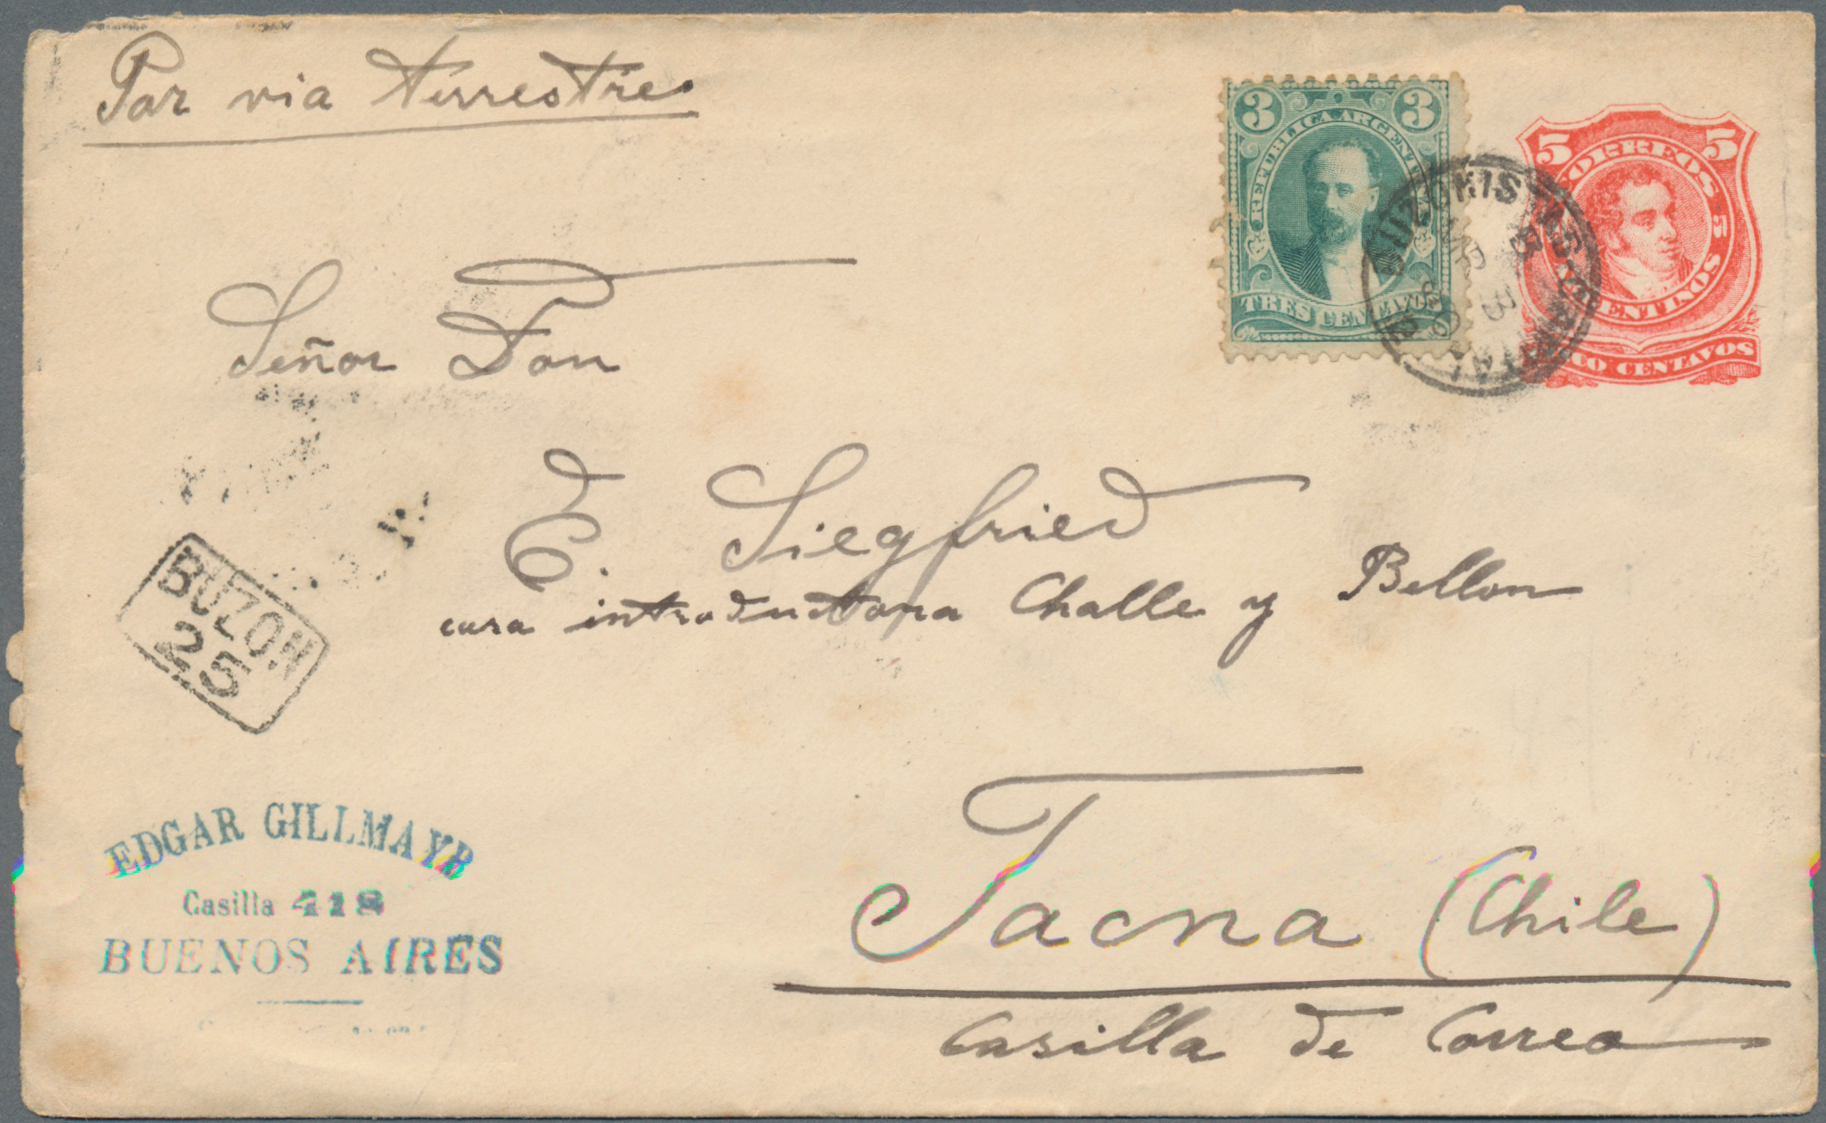 Par via terrestre.
3 3
REPUBLICA ARGENTINA
TRES CENTAVOS
5 5
CORREOS
CENTINOS
CO CENTAVOS
BUZONISTAS CAPITAL
Señor Don
E. Siegfried
casa introductora Challe y Bellon
BUZON
25
EDGAR GILLMAYR
Casilla 418
BUENOS AIRES
Tacna (Chile)
Casilla de Correo